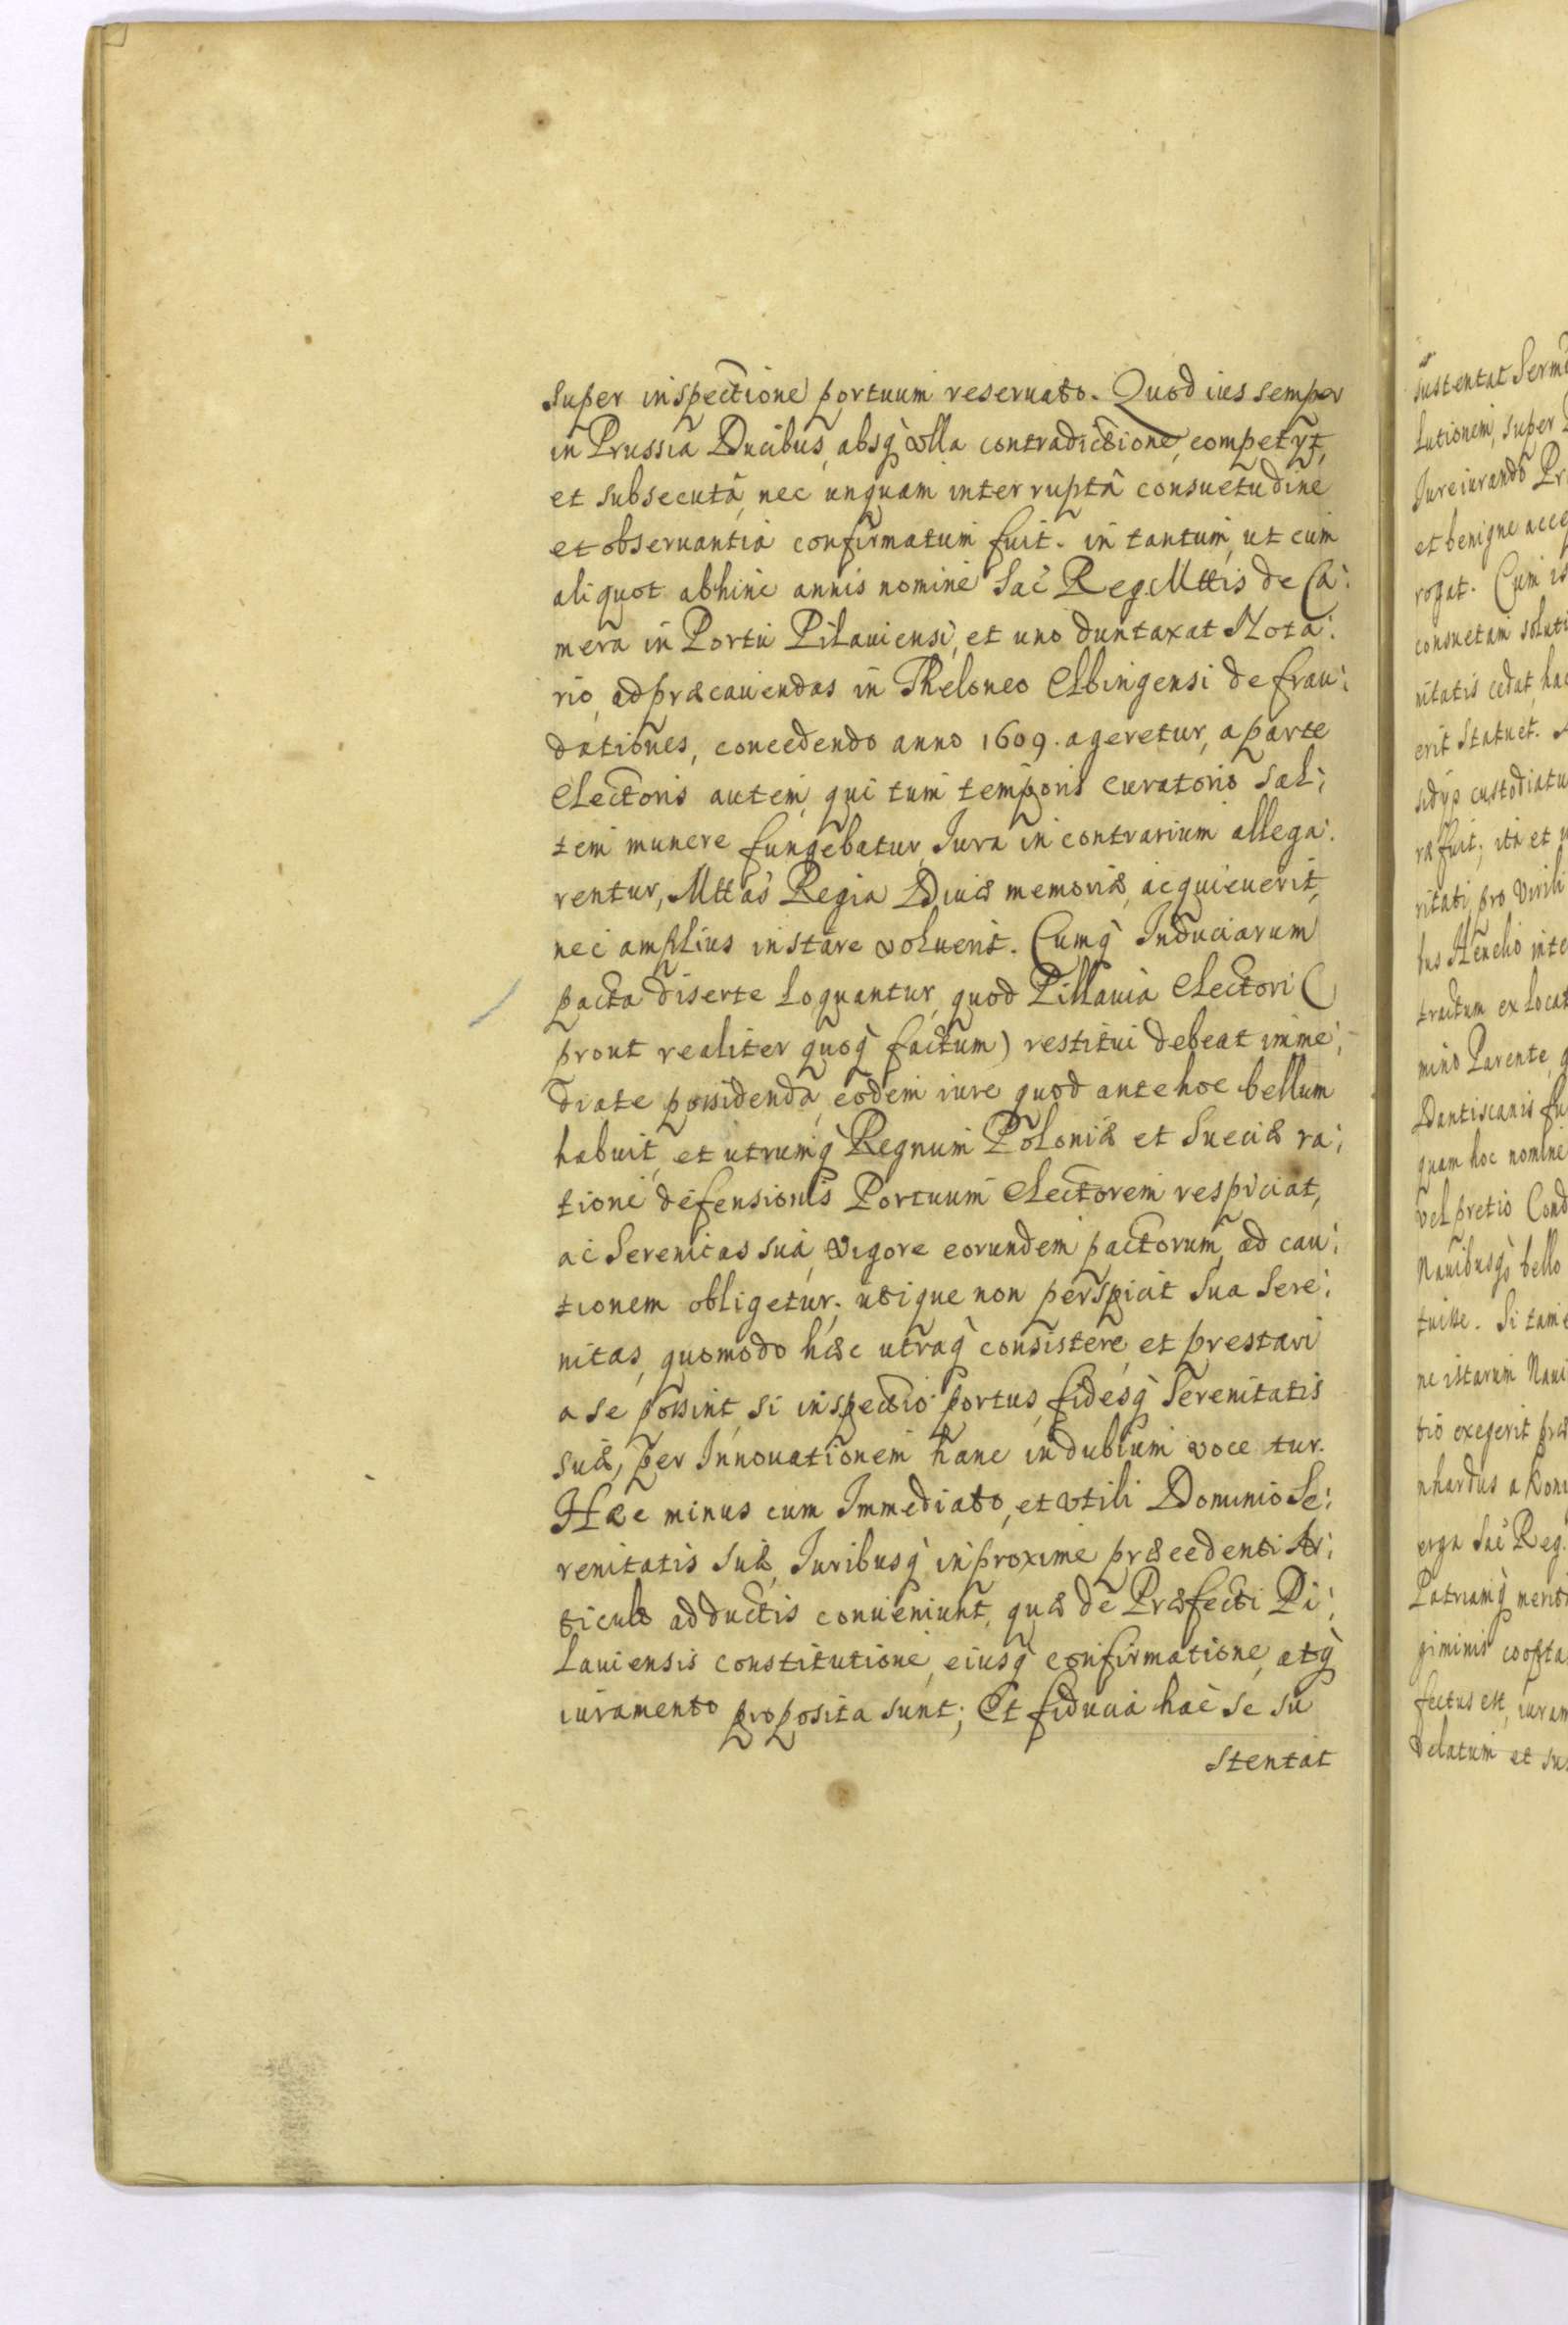 super inspectione portuum reseruato. Quod ius semper
in Prussia Ducibus, absq̀ vlla contradictione, competÿt,
et subsecutâ, nec unquam interruptâ consuetudine
et obseruantia confirmatum fuit. in tantum, ut cum
aliquot abhinc annis nomine Sac̀ Reg. Mttis de Ca:
mera in Portu Pilauiensi, et uno duntaxat Nota:
rio, ad præcauendas in Theloneo Elbingensi defrau:
dationes, concedendo anno 1609. ageretur, a parte
Electoris autem, qui tum temporis Curatorio sal:
tem munere fungebatur, Iura in contrarium allega:
rentur, Mttas Regia Diuæ memoriæ, acquieuerit,
nec amplius instare voluerit. Cumq̀ Induciarum
pacta diserte loquantur, quod Pillauia Electori (
prout realiter quoq̀ factum) restitui debeat imme:
diate possidenda, eodem iure quod ante hoc bellum
habuit, et utrumq̀ Regnum Poloniæ et Sueciæ ra:
tione defensionis Portuum Electorem respiciat,
ac Serenitas sua, vigore eorundem pactorum, ad cau:
tionem obligetur. utique non perspicit Sua Sere:
nitas, quomodo hæc utraq̀ consistere, et prestari
a se possint, si inspectio portus, fidesq̀ Serenitatis
suæ, per Innouationem hanc in dubium vocetur.
Hæc minus cum Immediato, et vtili Dominio Se:
renitatis Suæ, Iuribusq̀ in proxime præcedenti Ar:
ticulo adductis conueniunt, quæ de Præfecti Pi:
lauiensis constitutione, eiusq̀ confirmatione, atq̀
iuramento proposita sunt; Et fiducia hac se su
stentat
sustentat
lutionem, super
Iureiurando
et benigne
rogat. Cum
consuetam
nitatis cedat,
erit statuet.
ræ fuit, ita et
ritati, pro virili
tractum ex
mino Parente,
Dantiscanis
quam hoc nomine
vel pretio
Nauibusq̀ bello
tuisse. Si
ne istarum
tio exegerit
nhardus a
erga Sac̀ Reg.
Patriamq̀
giminis
fectus est,
delatum et